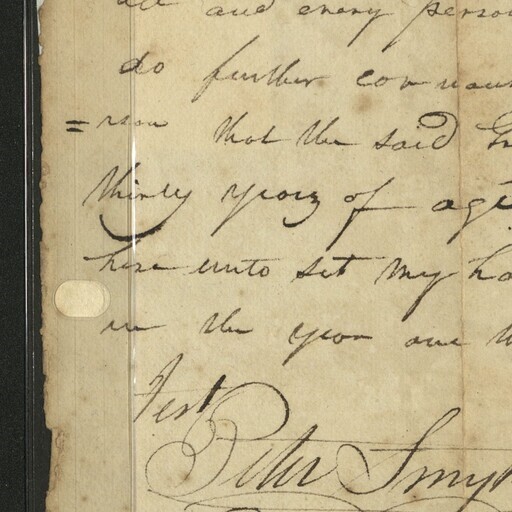 all and every perso
do further covenan
= mon that the said
thirty years of age
here unto set my ha
in the year one th
Test
Peter Smyt